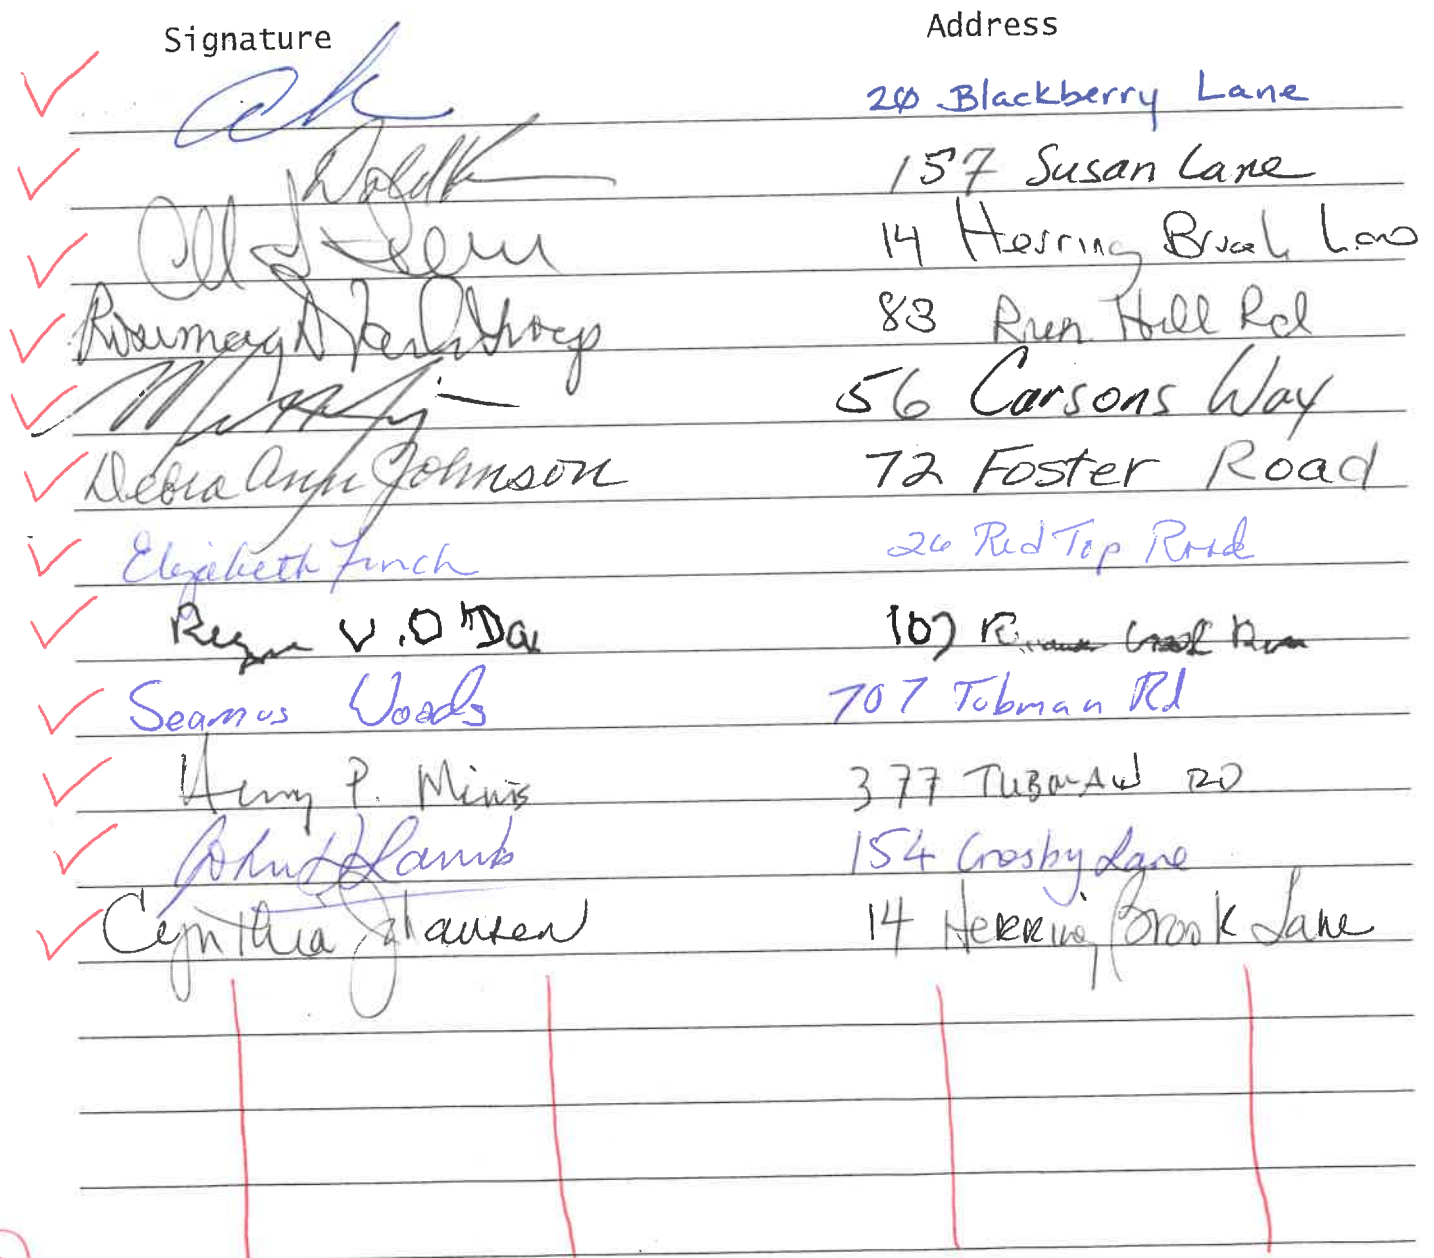 Signature Address
20 Blackberry Lane
157 Susan Lane
14 Herring Brook Lane
Rosemary 83 Run Hill Rd
56 Carsons Way
Debra Ann Johnson 72 Foster Road
Elizabeth Finch 26 Red Top Road
V. O'Da 107
Seamus Woods 707 Tubman Rd
Henry P. Minis 377 TUBMAN RD
John Lamb 154 Crosby Lane
Cynthia Hausen 14 Herring Brook Lane